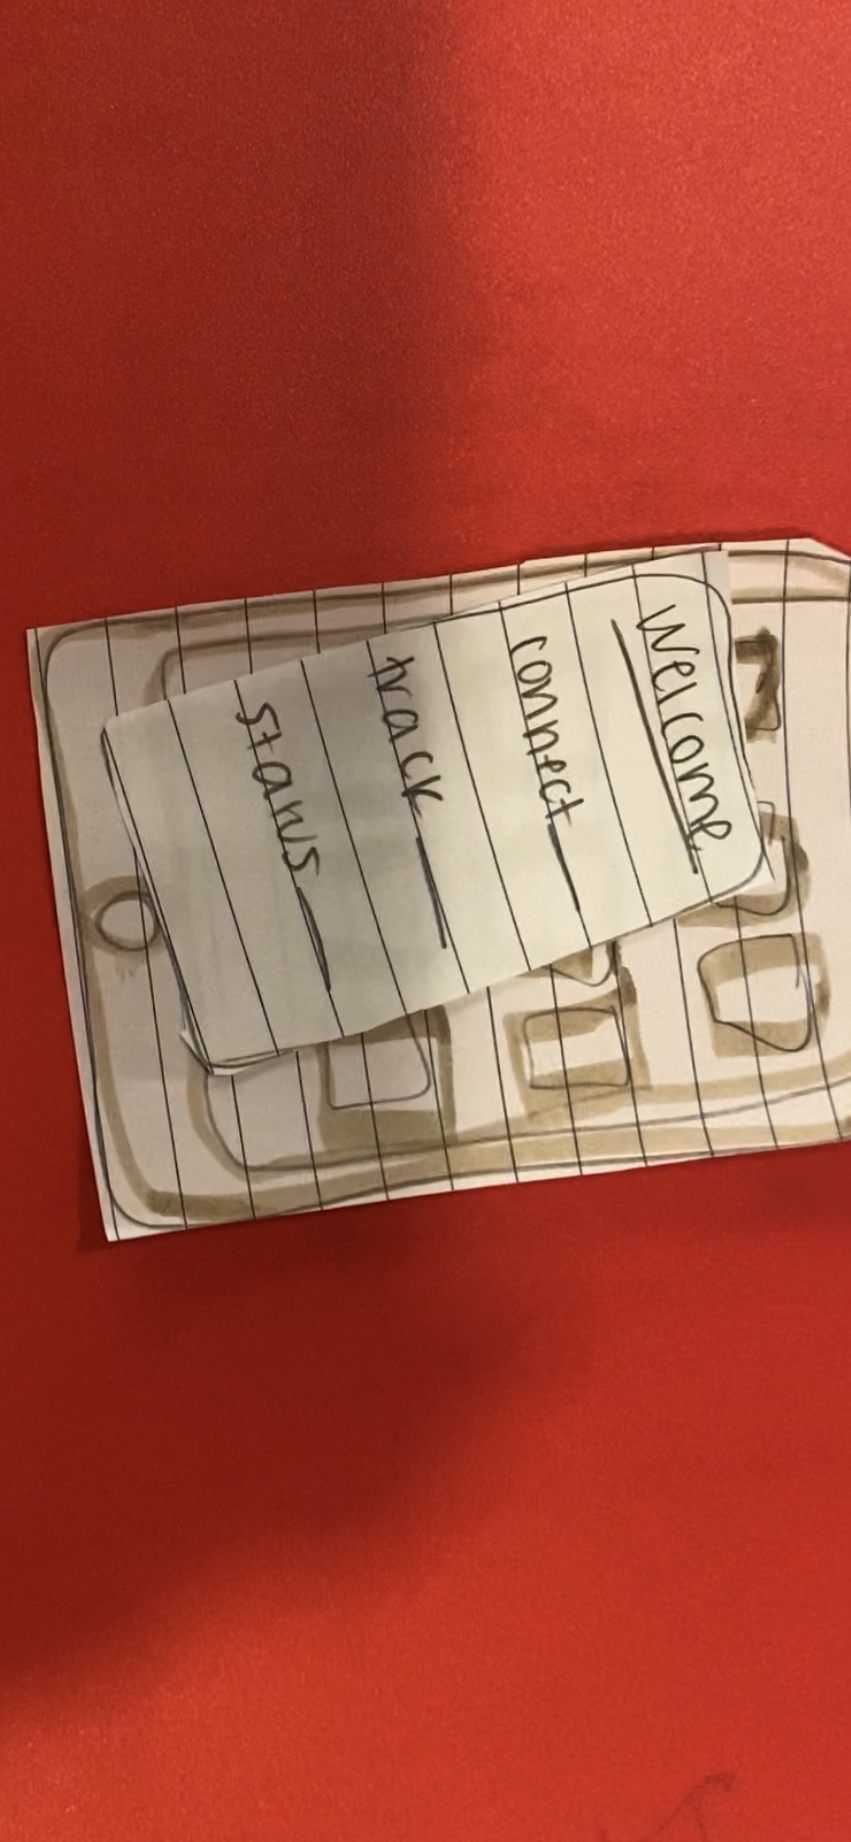 Welcome
connect
track
status